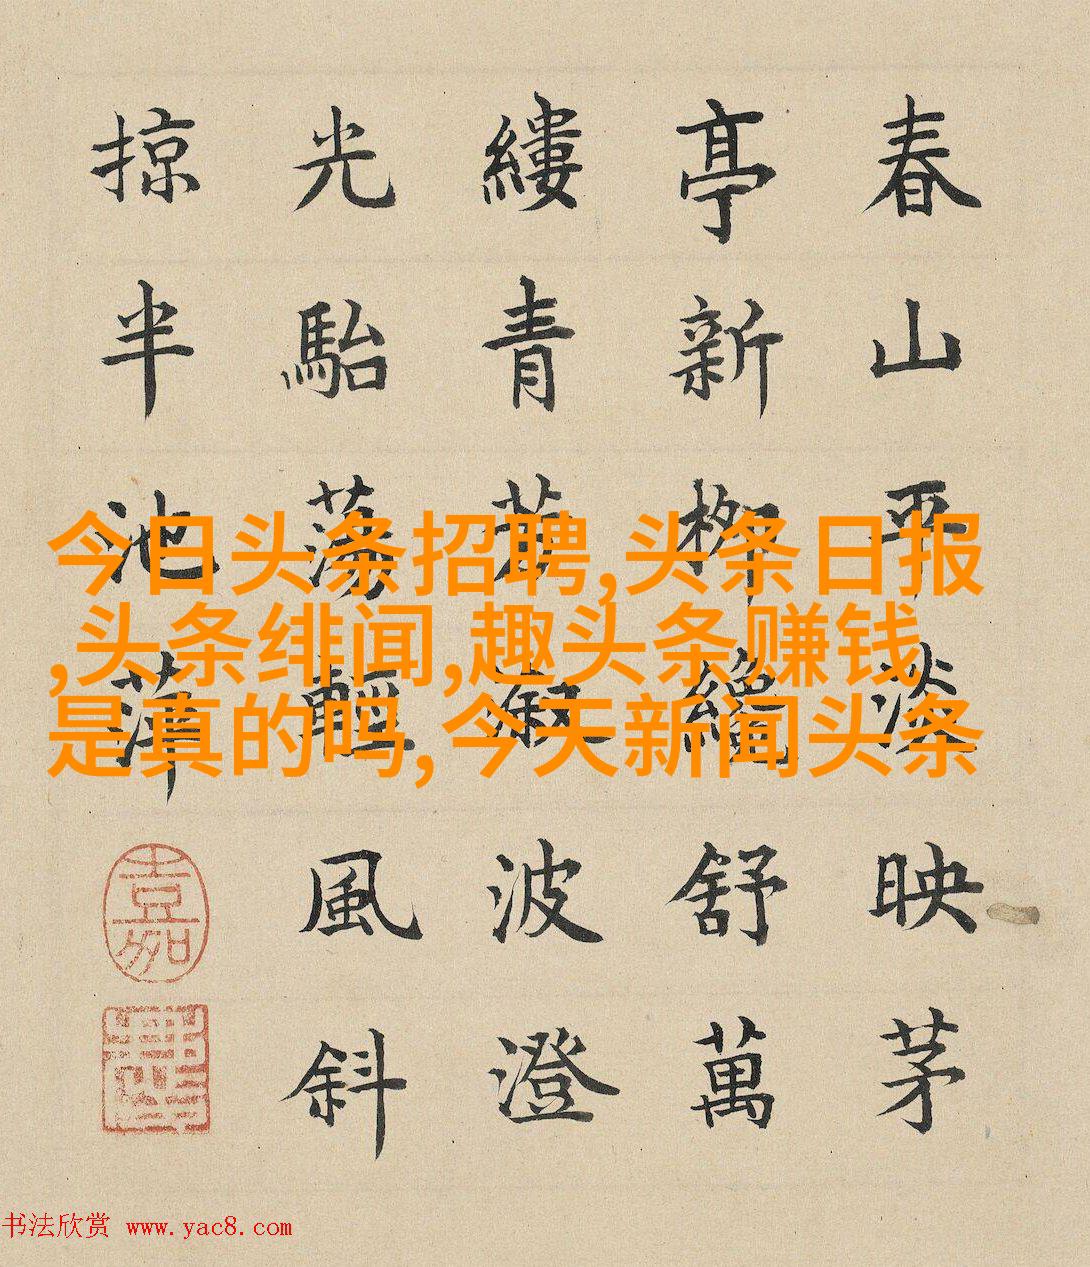 春山平淡映茅
亭新柳纔舒萬
縷青波澄
光駘蕩輕風斜
掠半池萍
嘉
今日头条招聘,头条日报
,头条绯闻,趣头条赚钱
是真的吗,今天新闻头条
书法欣赏 www.yac8.com